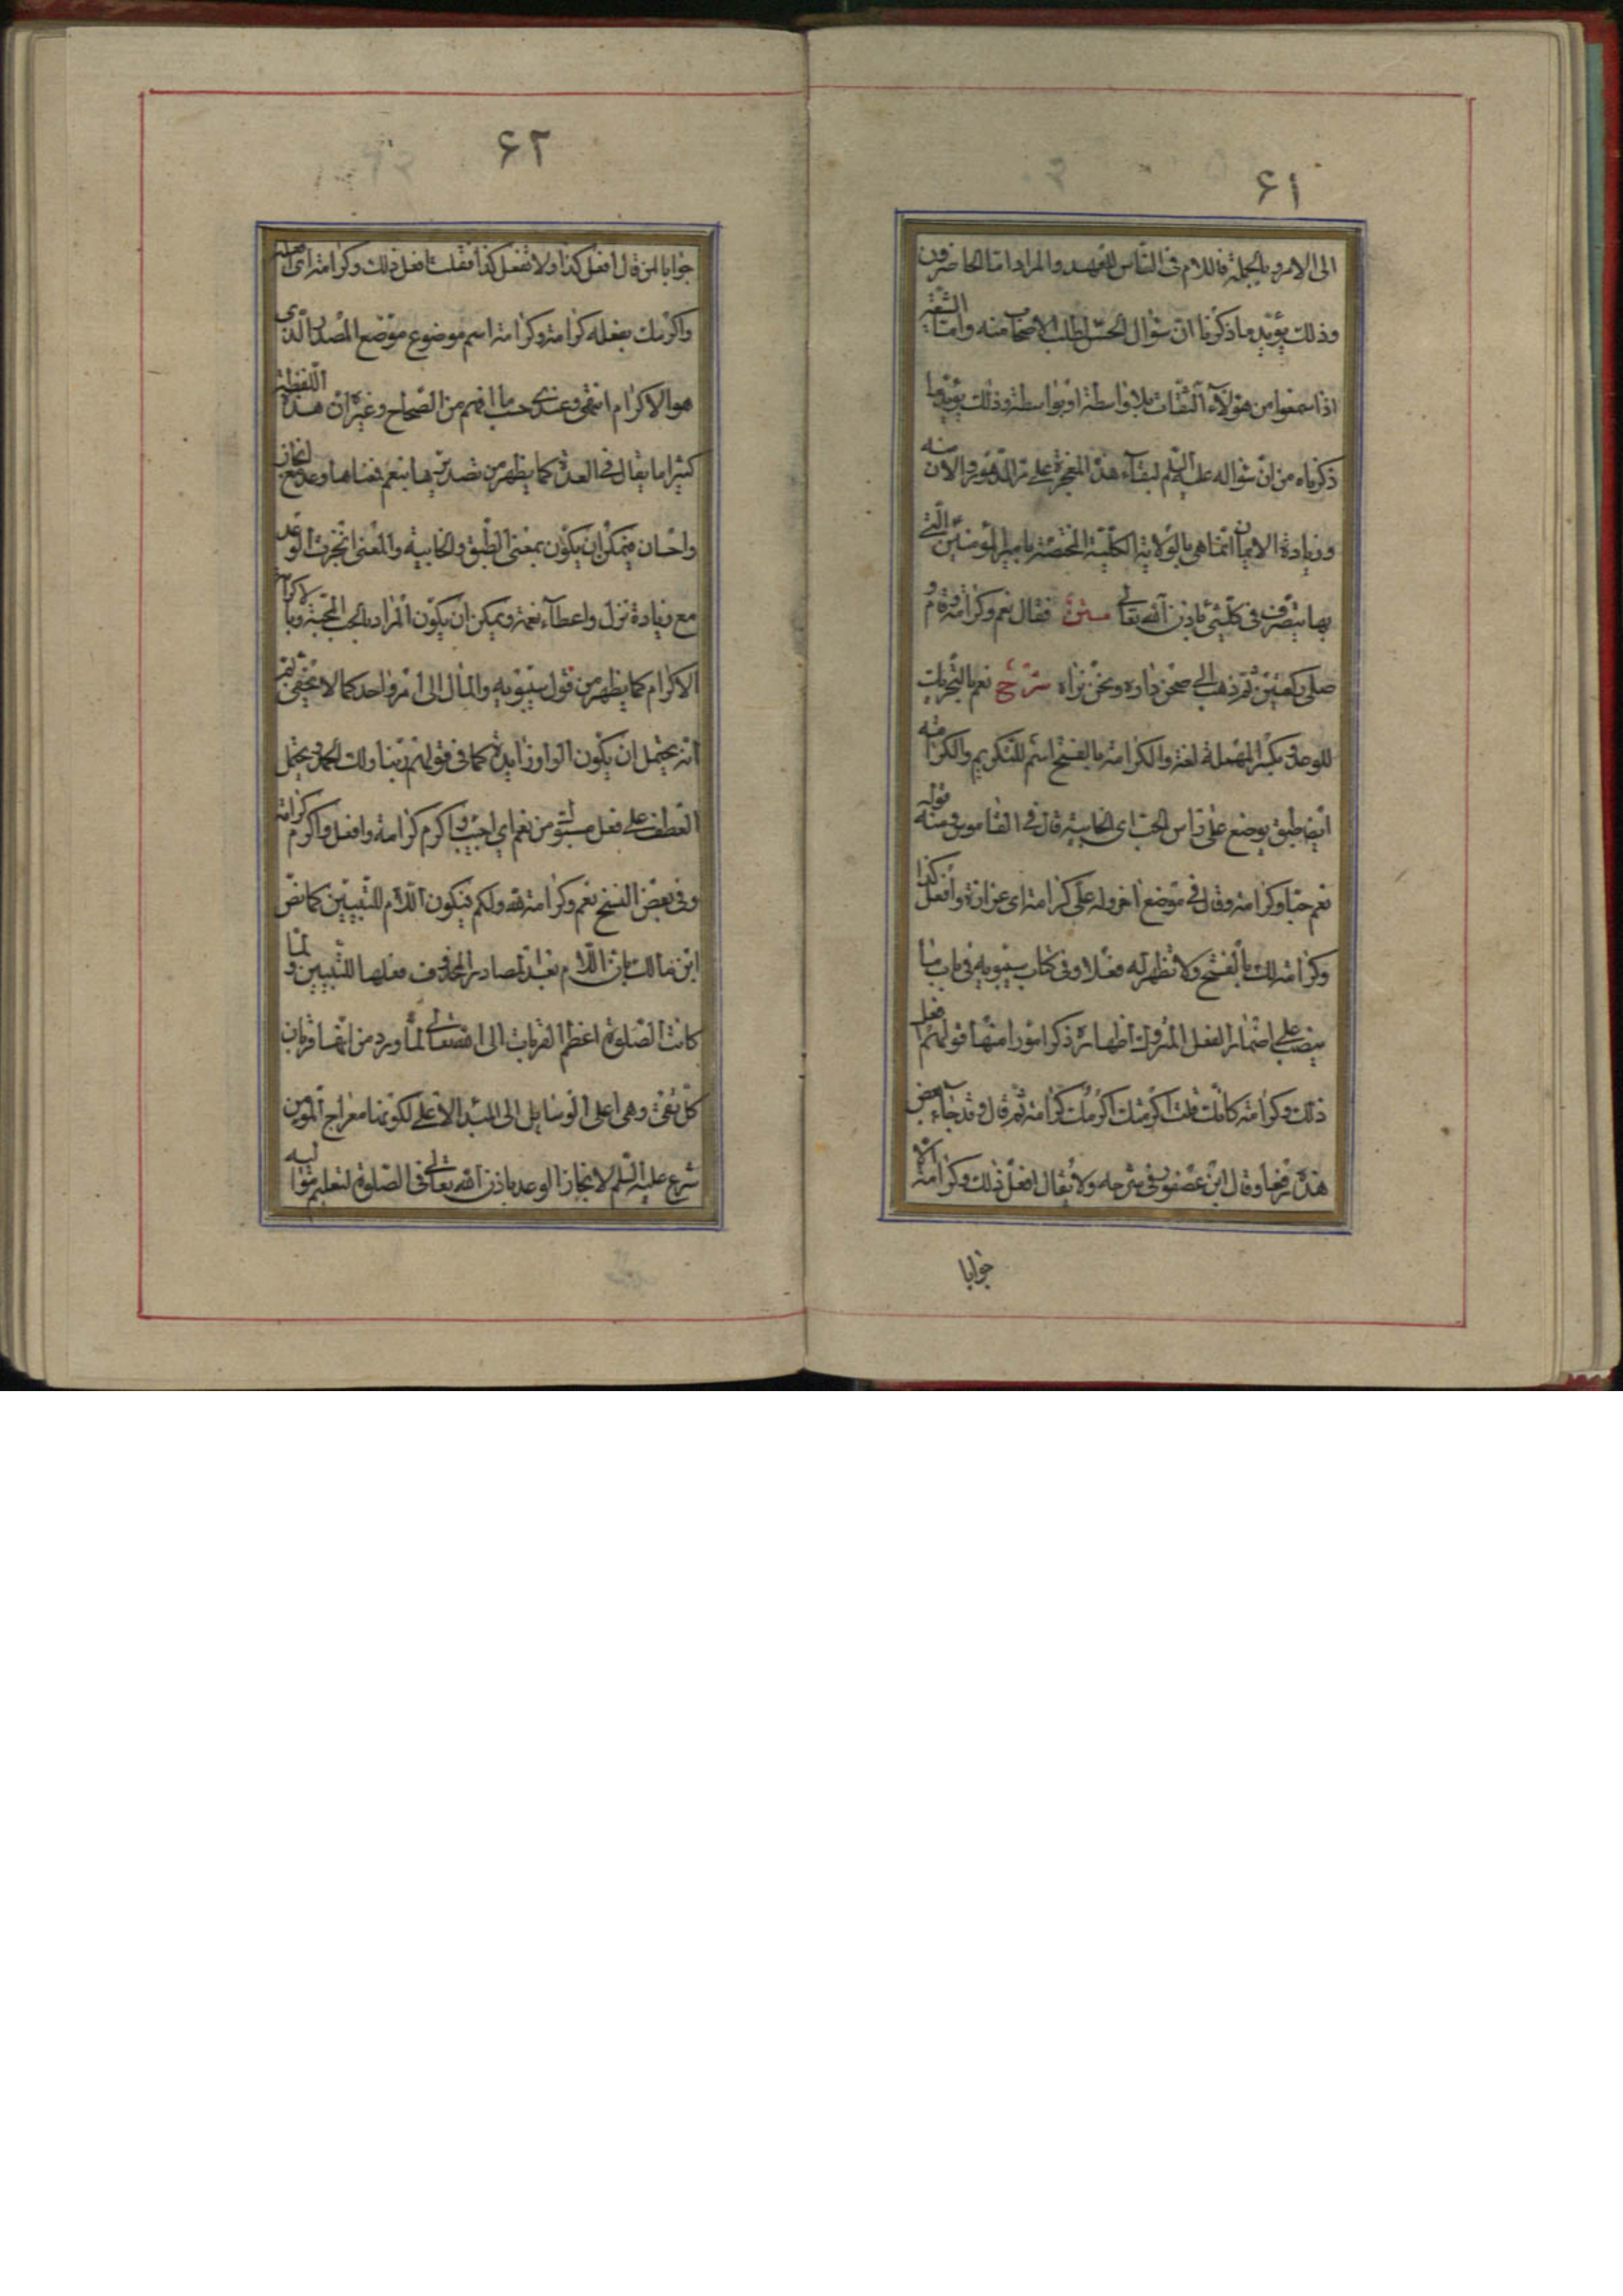 ۶۱
الى الامر وبالجملة فاللام فى النّاس للعهد والمراد امّا الحاضرون
وذلك يؤيّد ما ذكرنا انّ سؤال الحسن لطلب الاصحاب منه وامّا الشّيعة
اذا سمعوا من هؤلآء الثّقات بلا واسطة او بواسطة وذلك يؤيّد ما
ذكرناه من انّ سؤاله عليه السّلم لبقآء هذه المعجزة على مرّ الدّهور والازمنه
وزيادة الايمان انّما هى بالولاية الكلّيّة المختصّة بامير المؤمنين الّتى
بها يتصرّف فى كلّ شئ باذن الله تعالى متن فقال نعم وكرامة فقام و
صلّى ركعتين ثمّ ذهب الى صحن داره ونحن نراه شرح نعم بالتّحريك
للوعد وبكسر المهملة لغة والكرامة بالفتح اسم للتّكريم والكرامة
ايضا طبق يوضع على رأس الحبّ اى الخابية قال فى القاموس ومنه قوله
نعم حبّا وكرامة وقال فى موضع اخر وله علىّ كرامة اى عزازة وافعل كذا
وكرامة لك بالفتح ولا تظهر له فعلا وفى كتاب سيبويه فى باب ما
ينصب على اضمار الفعل المتروك اظهاره ذكر امورا منها قولهم افعل
ذلك وكرامة كانّك قلت اكرمتك اكرمك كرامة ثمّ قال وقد جآء بعض
هذه رفعا وقال ابن عصفور فى شرحه ولا يقال افعل ذلك وكرامة الّا
جوابا
۶۲
جوابا لمن قال افعل كذا ولا تفعل كذا فقلت افعل ذلك وكرامة اى افعله
واكرمك بفعله كرامة وكرامة اسم موضوع موضع المصدر الّذى
هو الاكرام انتهى وعندى حسب ما افهم من الصّحاح وغيره انّ هذه اللّفظة
كثيرا ما يقال فى العدة كما يظهر من تصديرها بنعم فمعناها وعد مع انجاز
واحسان فيمكن ان يكون بمعنى الطّبق والخابية والمعنى انجزت الوعد
مع زيادة نزل واعطآء نعمة ويمكن ان يكون المراد بالحبّ المحبّة وبالكرامة
الاكرام كما يظهر من قول سيبويه والمآل الى امر واحد كما لا يخفى ثمّ
انّه يحتمل ان يكون الواو زايدة كما فى قولهم ربّنا ولك الحمد ويحتمل
العطف على فعل مستتر من نعم اى اجيب واكرم كرامة وافعل واكرم كرامة
وفى بعض النسخ نعم وكرامة لله ولكم فيكون اللّام للتّبيين كما نصّ
ابن مالك بانّ اللّام بعد المصادر المحذوف فعلها للتّبيين ولمّا
كانت الصّلوة اعظم القربات الى الله تعالى لما ورد من انّها قربان
كلّ تقىّ وهى اعلى الوسايل الى المبدء الاعلى لكونها معراج المؤمن
شرع عليه السّلم لانجاز الوعد باذن الله تعالى فى الصّلوة لتعليم مواليه